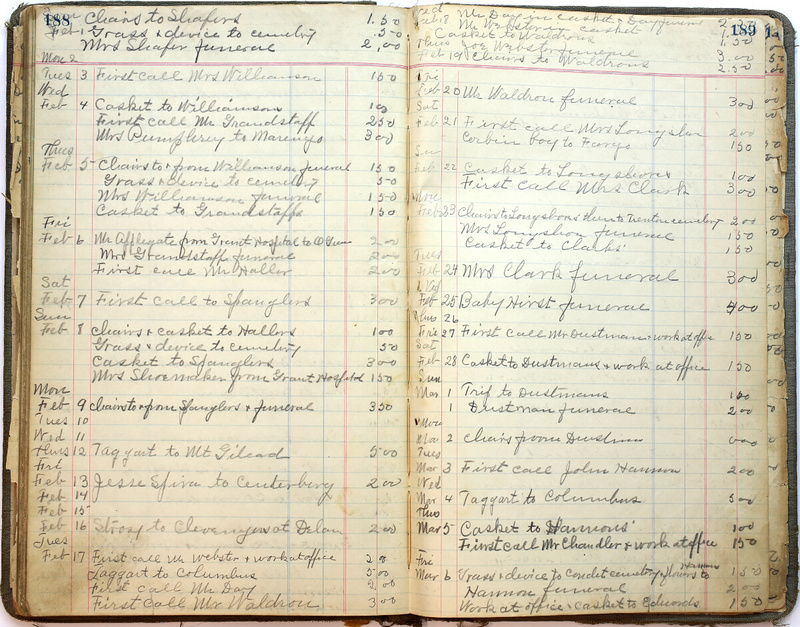 188
Chairs to Shafers 1.50
Feb 1 Grass & device to cemetery .50
Mrs Shafer funeral 2.00
Mon 2
Tues 3 First call Mrs Williamson 150
Wed
Feb 4 Casket to Williamson 100
First call Mr Grandstaff 250
Mrs Pumphrey to Marengo 300
Thus
Feb 5 Chairs to & from Williamson funeral 150
Grass & device to cemetery 50
Mrs Williamson funeral 150
Casket to Grandstaffs 150
Fri
Feb 6 Mr Applegate from Grant Hospital to 200
Mrs Grandstaff funeral 200
First call Mr Haller 200
Sat
Feb 7 First call to Spanglers 300
Sun
Feb 8 Chairs & casket to Hallers 100
Grass & device to cemetery 50
Casket to Spanglers 300
Mrs Shoemaker from Grant Hospital 150
Mon
Feb 9 chairs to & from Spanglers & funeral 350
Tues 10
Wed 11
Thurs 12 Taggart to Mt Gilead 500
Fri
Feb 13 Jesse Spira to Centerberg 200
Feb 14
Feb 15
Feb 16 Strosy to at Delaw 200
Tues
Feb 17 First call Mr Webster & work at office
Taggart to Columbus 500
First call Mr Day 200
First call Mr Waldron 300
189
Feb 18 Mr Day in casket & Day funeral
Mr Webster in casket
Casket to Waldrons 1.50
Thus Joe Webster funeral 3.00
Feb 19 Chairs to Waldrons 2.50
Fri
Feb 20 Mr Waldron funeral 300
Sat
Feb 21 First call Mrs Longshor 200
Corbin boy to Fargo 150
Sun
Feb 22 Casket to Longshores 100
First Call Mrs Clark 300
Mon
Feb 23 Chairs to Longshores then to Trenton cemetery 200
Mrs Longshor funeral 150
Casket to Clarks' 150
Tues
Feb 24 Mrs Clark funeral 300
Wed
Feb 25 Baby Hirst funeral 400
Thus 26
Fri 27 First call Mr Dustman & work at office 150
Sat
Feb 28 Casket to Dustmans & work at office 150
Sun
Mar 1 Trip to Dustmans 100
1 Dustman funeral 200
Mon
Mar 2 Chairs from Dustman
Tues
Mar 3 First call John Hannon 200
Wed
Mar 4 Taggart to Columbus 500
Thus
Mar 5 Casket to Hannons' 100
First call Mr Chandler & work at office 150
Fri
Mar 6 Grass & device to Condit cemetery, flowers to Hannons 150
Hannon funeral
Work at office & casket to Edwards 150